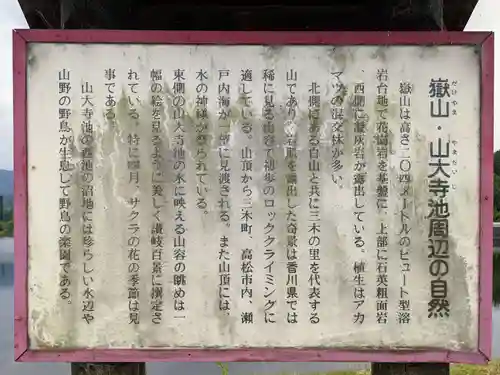 嶽山・山大寺池周辺の自然
だけやま
やまだいじ
嶽山は高さ二〇四メートルのビュート型溶
岩台地で花崗岩を基盤に、上部に石英粗面岩
・西側に凝灰岩が露出している。植生はアカ
マツの混交林が多い。
北側にある白山と共に三木の里を代表する
山であり、岩肌を露出した奇景は香川県では
稀に見る山容で初歩のロッククライミングに
適している。山頂から三木町、高松市内、瀬
戸内海が一望に見渡される。また山頂には
水の神様が祭られている。
東側の山大寺池の水に映える山容の眺めは一
幅の絵を見るように美しく讃岐百景に撰定さ
れている。特に四月、サクラの花の季節は見
事である。
山大寺池の西池の沼地には珍らしい水辺や
山野の野鳥が生息して野鳥の楽園である。